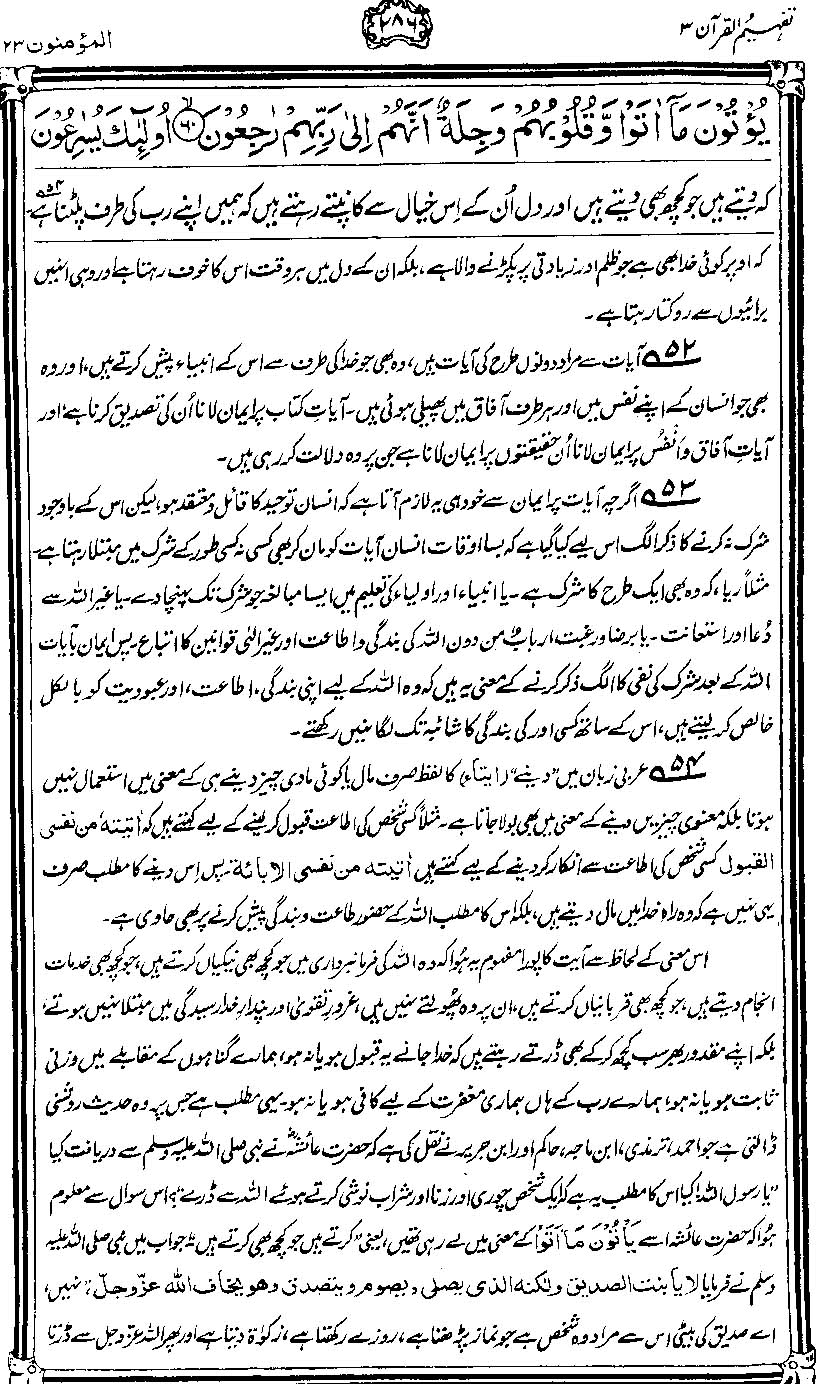 تفہیم القرآن ۳
۲۸۶
المؤمنون ۲۳
يُؤْتُوْنَ مَآ اٰتَوْا وَّقُلُوْبُهُمْ وَجِلَةٌ اَنَّهُمْ اِلٰى رَبِّهِمْ رٰجِعُوْنَ ۶۰ اُولٰٓئِكَ يُسٰرِعُوْنَ
کہ دیتے ہیں جو کچھ بھی دیتے ہیں اور دل اُن کے اِس خیال سے کانپتے رہتے ہیں کہ ہمیں اپنے رب کی طرف پلٹنا ہے ۵۴
کہ اوپر کوئی خدا بھی ہے جو ظلم اور زیادتی پر پکڑنے والا ہے، بلکہ ان کے دل میں ہر وقت اس کا خوف رہتا ہے اور وہی انہیں
برائیوں سے روکتا رہتا ہے۔
۵۲ آیات سے مراد دونوں طرح کی آیات ہیں، وہ بھی جو خدا کی طرف سے اس کے انبیاء پیش کرتے ہیں، اور وہ
بھی جو انسان کے اپنے نفس میں اور ہر طرف آفاق میں پھیلی ہوئی ہیں۔ آیاتِ کتاب پر ایمان لانا اُن کی تصدیق کرنا ہے، اور
آیاتِ آفاق و اَنْفُس پر ایمان لانا اُن حقیقتوں پر ایمان لانا ہے جن پر وہ دلالت کر رہی ہیں۔
۵۳ اگرچہ آیات پر ایمان سے خود ہی یہ لازم آتا ہے کہ انسان توحید کا قائل و معتقد ہو، لیکن اس کے باوجود
شرک نہ کرنے کا ذکر الگ اس لیے کیا گیا ہے کہ بسا اوقات انسان آیات کو مان کر بھی کسی نہ کسی طور کے شرک میں مبتلا رہتا ہے۔
مثلاً ریا، کہ وہ بھی ایک طرح کا شرک ہے۔ یا انبیاء اور اولیاء کی تعلیم میں ایسا مبالغہ جو شرک تک پہنچا دے۔ یا غیر اللہ سے
دُعا اور استعانت۔ یا برضا ورغبت اربابٌ من دون اللہ کی بندگی و اطاعت اور غیر الٰہی قوانین کا اتباع۔ پس ایمان بآیات
اللہ کے بعد شرک کی نفی کا الگ ذکر کرنے کے معنی یہ ہیں کہ وہ اللہ کے لیے اپنی بندگی، اطاعت، اور عبودیت کو بالکل
خالص کر لیتے ہیں، اس کے ساتھ کسی اور کی بندگی کا شائبہ تک لگا نہیں رکھتے۔
۵۴ عربی زبان میں ”دینے“ (ایتاء) کا لفظ صرف مال یا کوئی مادی چیز دینے ہی کے معنی میں استعمال نہیں
ہوتا بلکہ معنوی چیزیں دینے کے معنی میں بھی بولا جاتا ہے۔ مثلاً کسی شخص کی اطاعت قبول کر لینے کے لیے کہتے ہیں کہ اٰتیتہٗ من نفسی
القبول کسی شخص کی اطاعت سے انکار کر دینے کے لیے کہتے ہیں اٰتیتہ من نفسی الابائة۔ پس اِس دینے کا مطلب صرف
یہی نہیں ہے کہ وہ راہِ خدا میں مال دیتے ہیں، بلکہ اس کا مطلب اللہ کے حضور طاعت و بندگی پیش کرنے پر بھی حاوی ہے۔
اس معنی کے لحاظ سے آیت کا پورا مفہوم یہ ہوا کہ وہ اللہ کی فرمانبرداری میں جو کچھ بھی نیکیاں کرتے ہیں، جو کچھ بھی خدمات
انجام دیتے ہیں، جو کچھ بھی قربانیاں کرتے ہیں، ان پر وہ پھولتے نہیں ہیں، غرورِ تقویٰ اور پندارِ خدا رسیدگی میں مبتلا نہیں ہوتے،
بلکہ اپنے مقدور بھر سب کچھ کر کے بھی ڈرتے رہتے ہیں کہ خدا جانے یہ قبول ہو یا نہ ہو، ہمارے گناہوں کے مقابلے میں وزنی
ثابت ہو یا نہ ہو، ہمارے رب کے ہاں ہماری مغفرت کے لیے کافی ہو یا نہ ہو۔ یہی مطلب ہے جس پر وہ حدیث روشنی
ڈالتی ہے جو احمد، ترمذی، ابن ماجہ، حاکم اور ابن جریر نے نقل کی ہے کہ حضرت عائشہؓ نے نبی صلی اللہ علیہ وسلم سے دریافت کیا
”یا رسول اللہ! کیا اس کا مطلب یہ ہے کہ ایک شخص چوری اور زنا اور شراب نوشی کرتے ہوئے اللہ سے ڈرے“؟ اس سوال سے معلوم
ہوا کہ حضرت عائشہ اسے یَاْتُوْنَ مَا اَتَوْا کے معنی میں لے رہی تھیں، یعنی ”کرتے ہیں جو کچھ بھی کرتے ہیں“۔ جواب میں نبی صلی اللہ علیہ
وسلم نے فرمایا لا یا بنت الصدیق ولکنہ الذی یصلی و یصوم و یتصدق وھو یخاف اللہ عزّ وجلّ، ”نہیں،
اے صدیق کی بیٹی اس سے مراد وہ شخص ہے جو نماز پڑھتا ہے، روزے رکھتا ہے، زکوٰۃ دیتا ہے اور پھر اللہ عز وجل سے ڈرتا